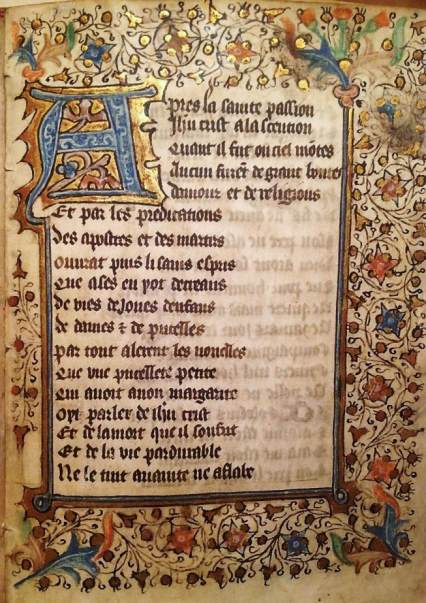 Apres la sainte passion
Jhu crist a la scention
Quant il fut ou ciel motes
Aucun furet de grant bontes
damour et de religions
Et par les predications
Des apostres et des martirs
ouurat puis li sains espris
Que ases en yot de ceaus
De vies de joues denfans
de dames & de pucelles
par tout alerent les nouelles
Que vne pucellete petite
Qui auoit a non margarite
Oyt parler de ihu crist
Et de la mort que il soufrit
Et de la vie pardurable
Ne le tint